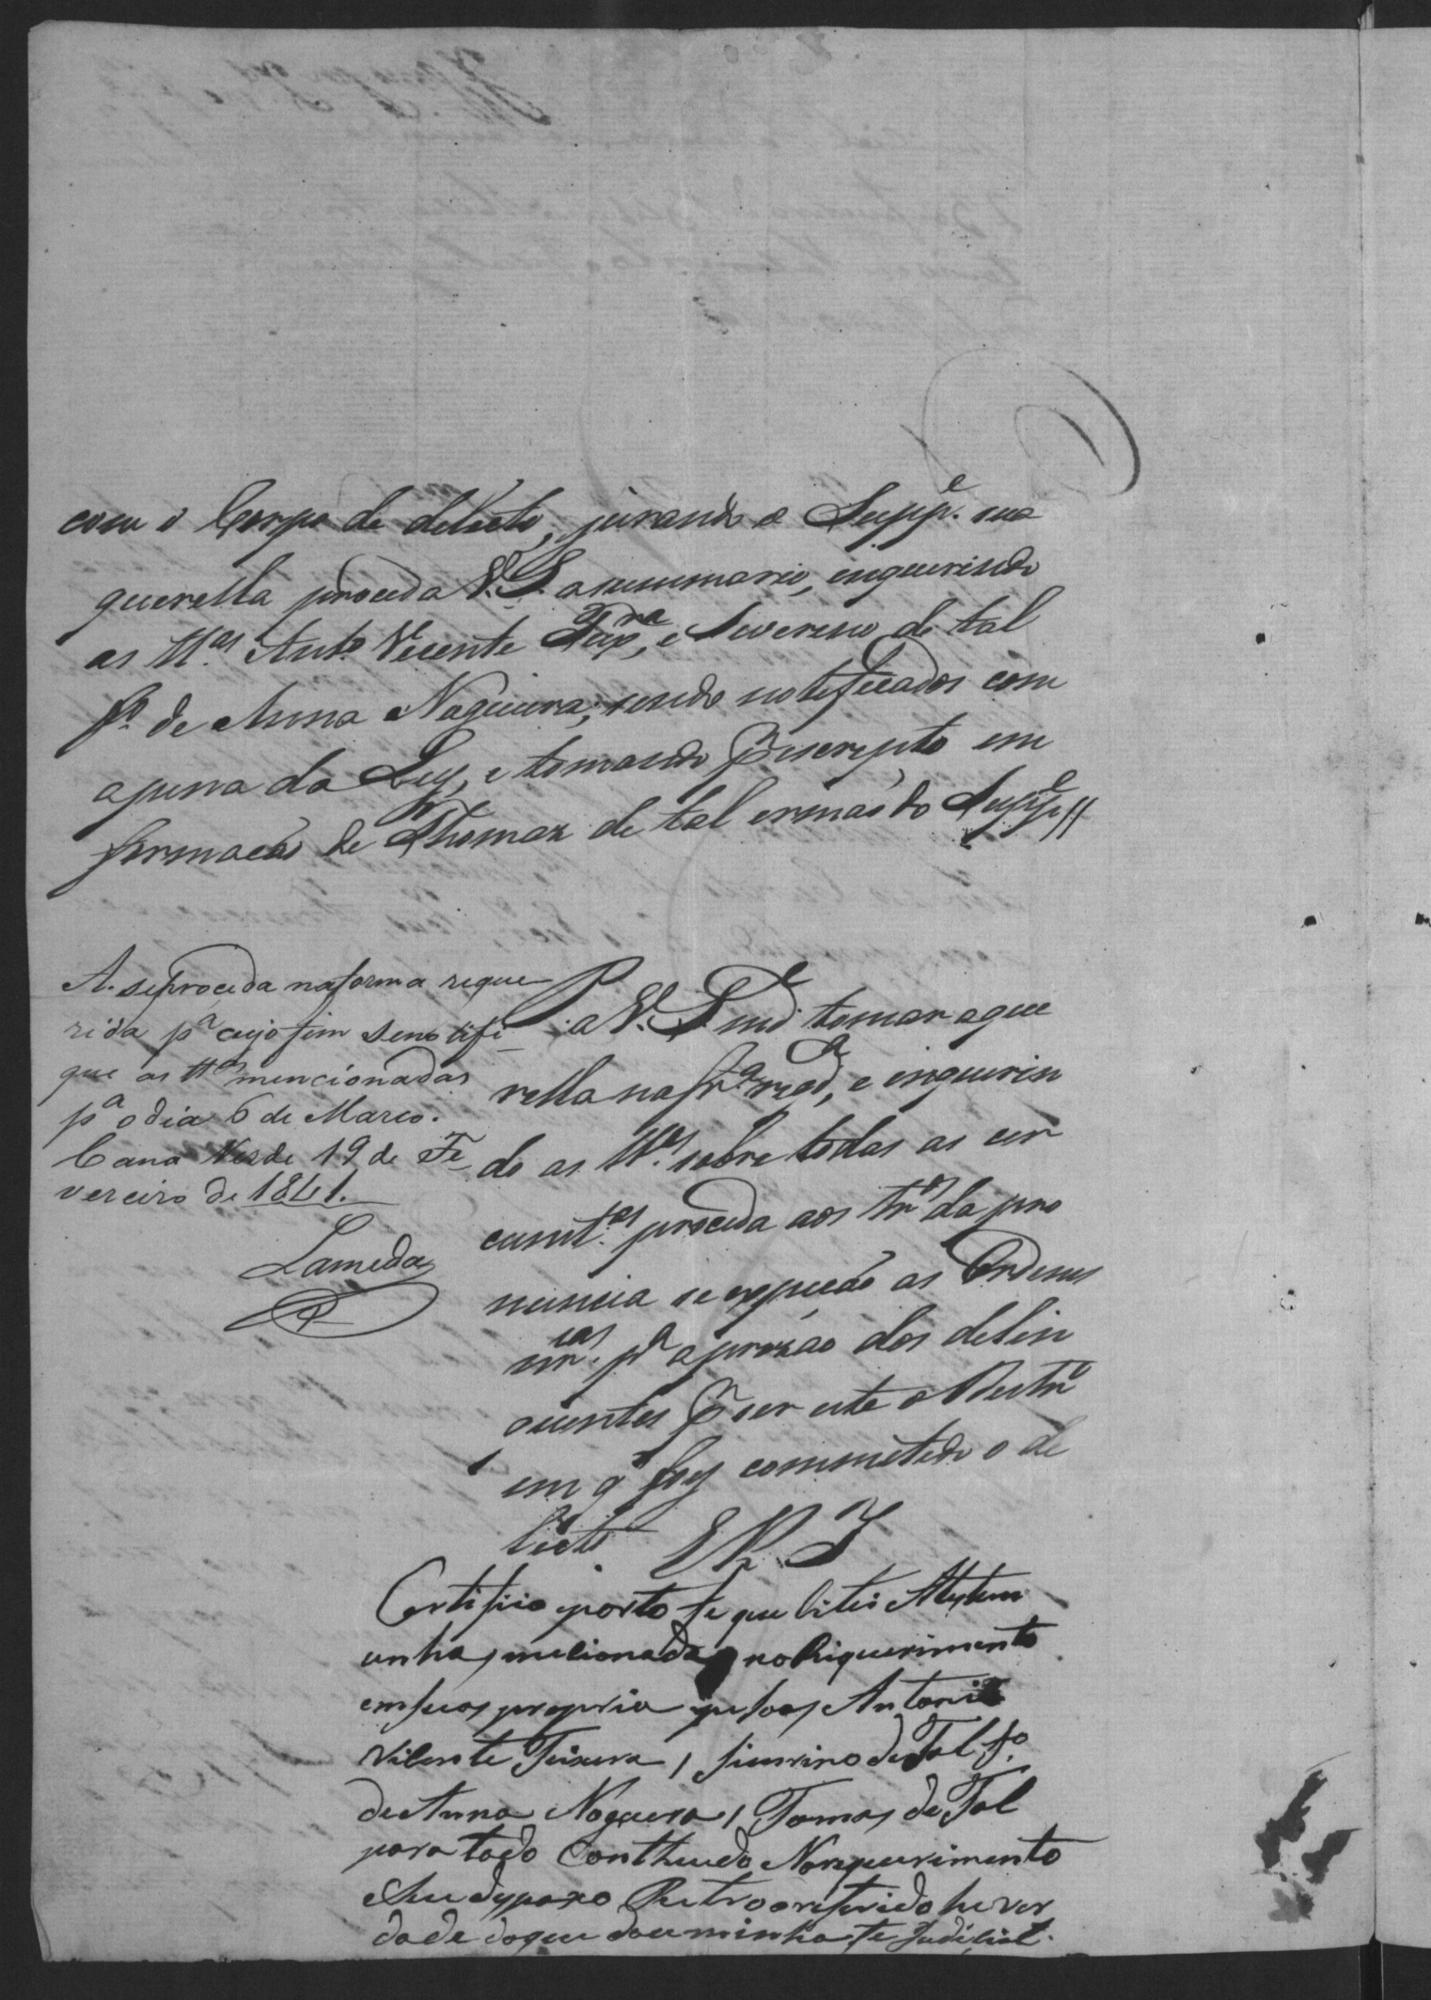 com o Corpo de delicto, jurando o Supp.e sua
querella proceda V. S. a summario, inquerindo
as tt.as Ant.o Vicente Teix.ra, e Severino de tal
f.o de Anna Nogueira; sendo notificados com
apena da Ley, e tomando p escripto em
formação de Thomaz de tal ermaõ do Supp.e //
A. seproceda naforma reque
rida p.a cujo fim senotifi
que as tt.as mencionadas
p.a odia 6 de Marco.
Cana Verde 19 de Fe
vereiro de 1841.
Lameda
P. a V. S. tomar aque
rella naf.a req.da, e inquirin
do as tt.as sobre todas as cir
cunst.as proceda aos tr.os da pro
nuncia se expeção as Ordens
nr.cas p.a aprizão dos delin
quentes p ser este o Destr.o
em q foy commetido o de
licto. E R. J
Certifico eporto fe que Citei Astestem
unhas mecionadas no Riquerimento
emsuas propria pesoas Antonio
Vicente Teixera / siverino de Tal f.o
de Anna Noguera / Tomas de Tal
para todo Conthiudo Norequerimento
eSeu dypaxo Retro oreferido he ver
dade doque dou minha fe Judicial.